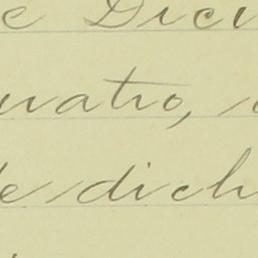 e Dici
uatro,
de dich